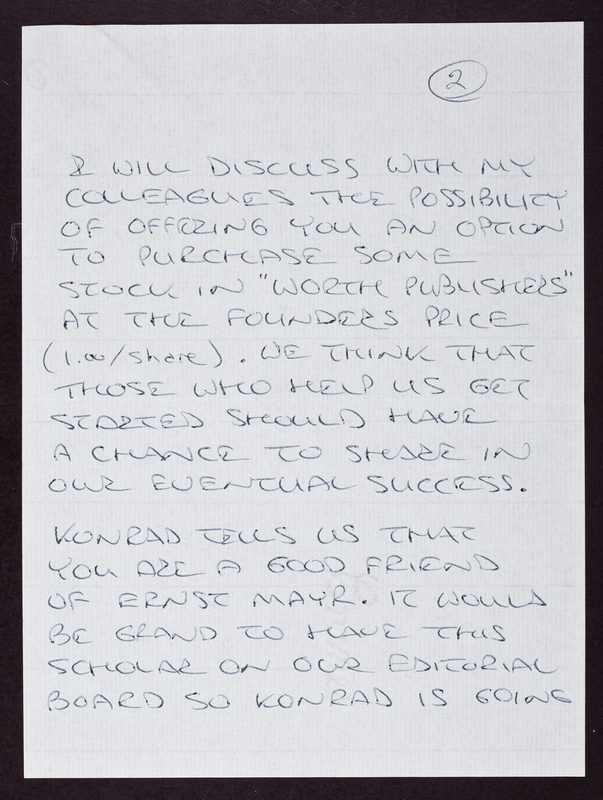 2
I WILL DISCUSS WITH MY
COLLEAGUES THE POSSIBILITY
OF OFFERING YOU AN OPTION
TO PURCHASE SOME
STOCK IN "WORTH PUBLISHERS"
AT THE FOUNDERS PRICE
(1.00/share). WE THINK THAT
THOSE WHO HELP US GET
STARTED SHOULD HAVE
A CHANCE TO SHARE IN
OUR EVENTUAL SUCCESS.
KONRAD TELLS US THAT
YOU ARE A GOOD FRIEND
OF ERNST MAYR. IT WOULD
BE GRAND TO HAVE THIS
SCHOLAR ON OUR EDITORIAL
BOARD SO KONRAD IS GOING